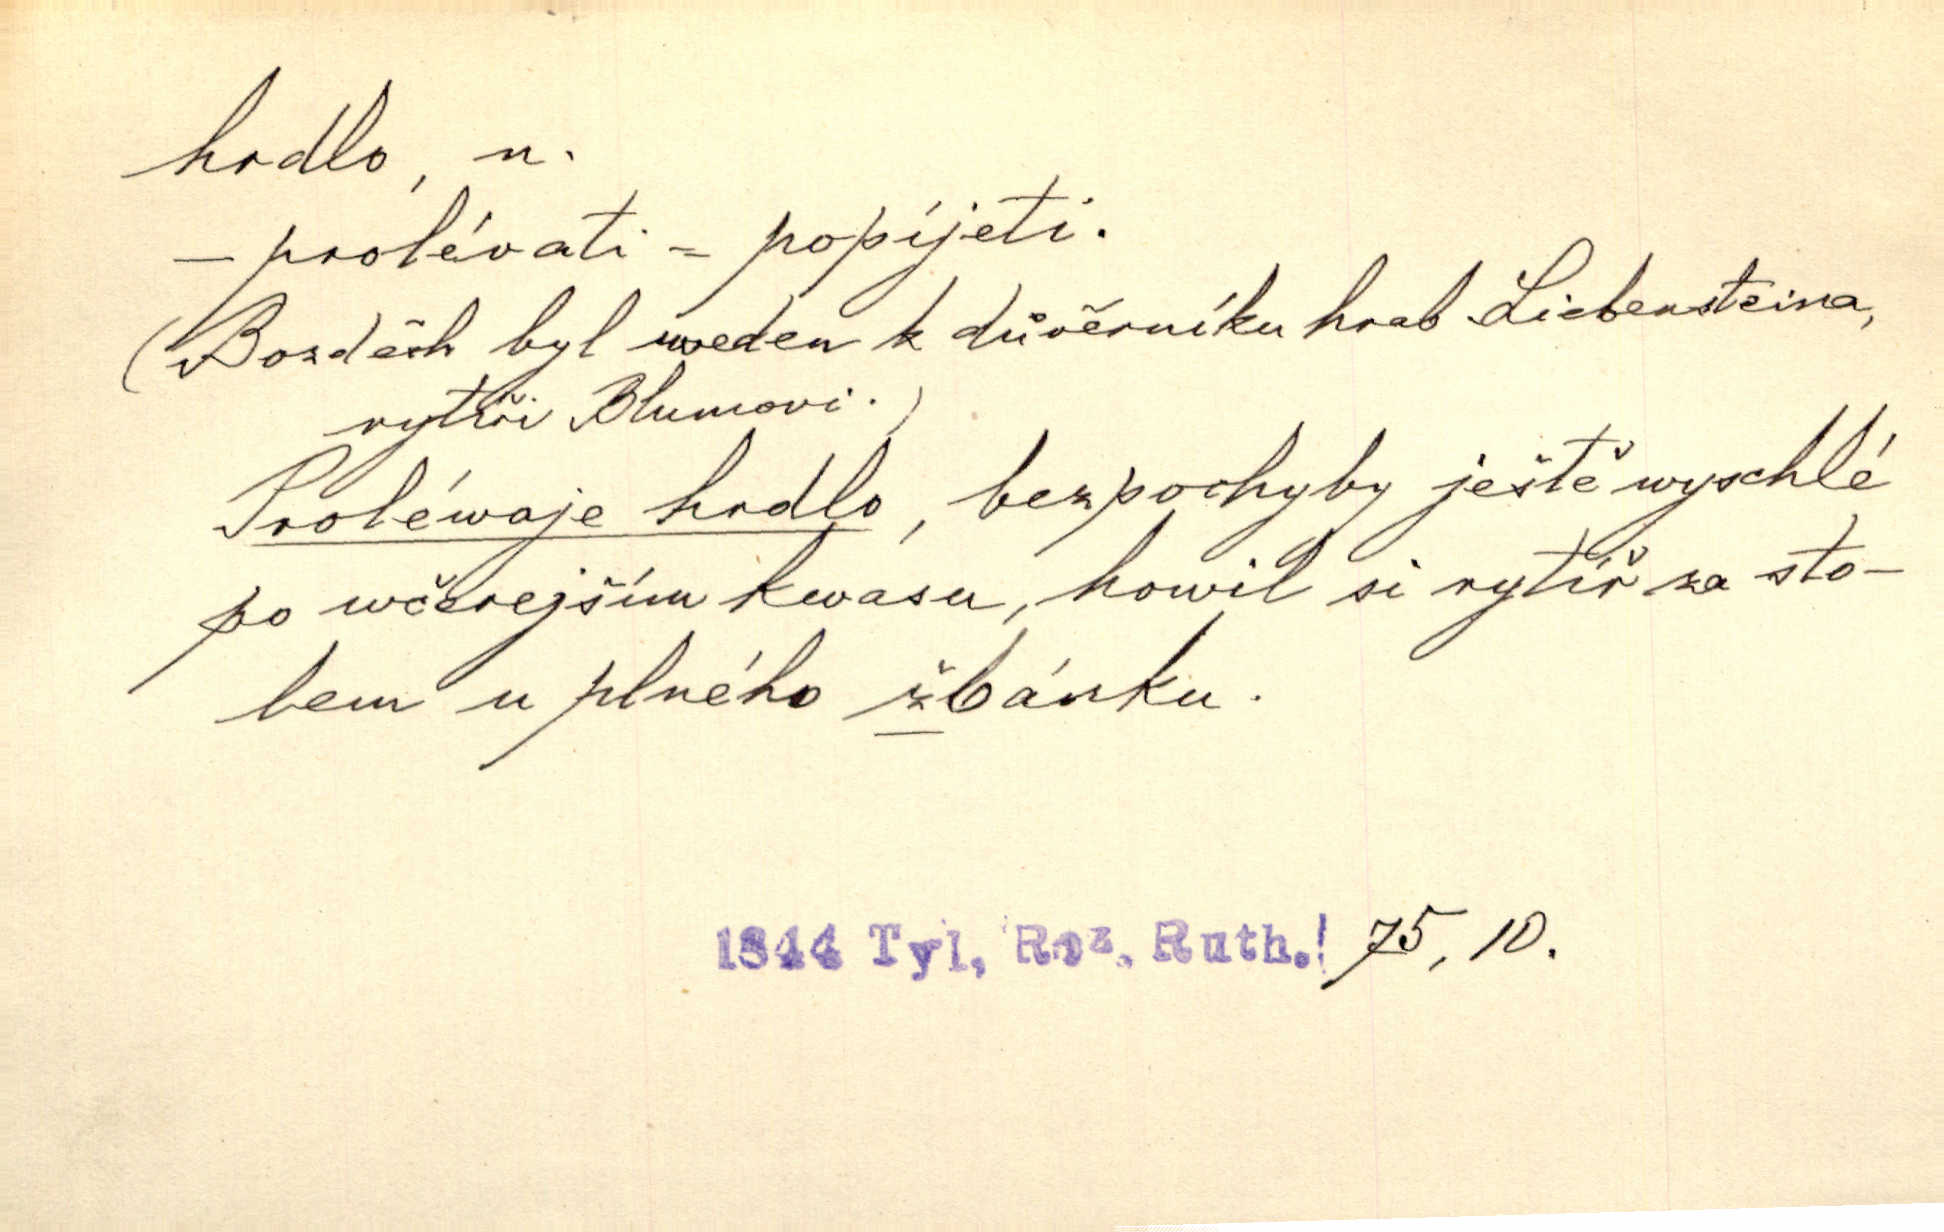 hrdlo, n.
– prolévati = popíjeti.
(Bozděch byl uveden k důvěrníku hrab Liebensteina,
rytíři Blumovi.)
Proléwaje hrdlo, bezpochyby ještě wyschlé
po wčerejším kwasu, howil si rytíř za sto-
lem u plného žbánku.
1844 Tyl, Roz. Ruth.! 75, 10.